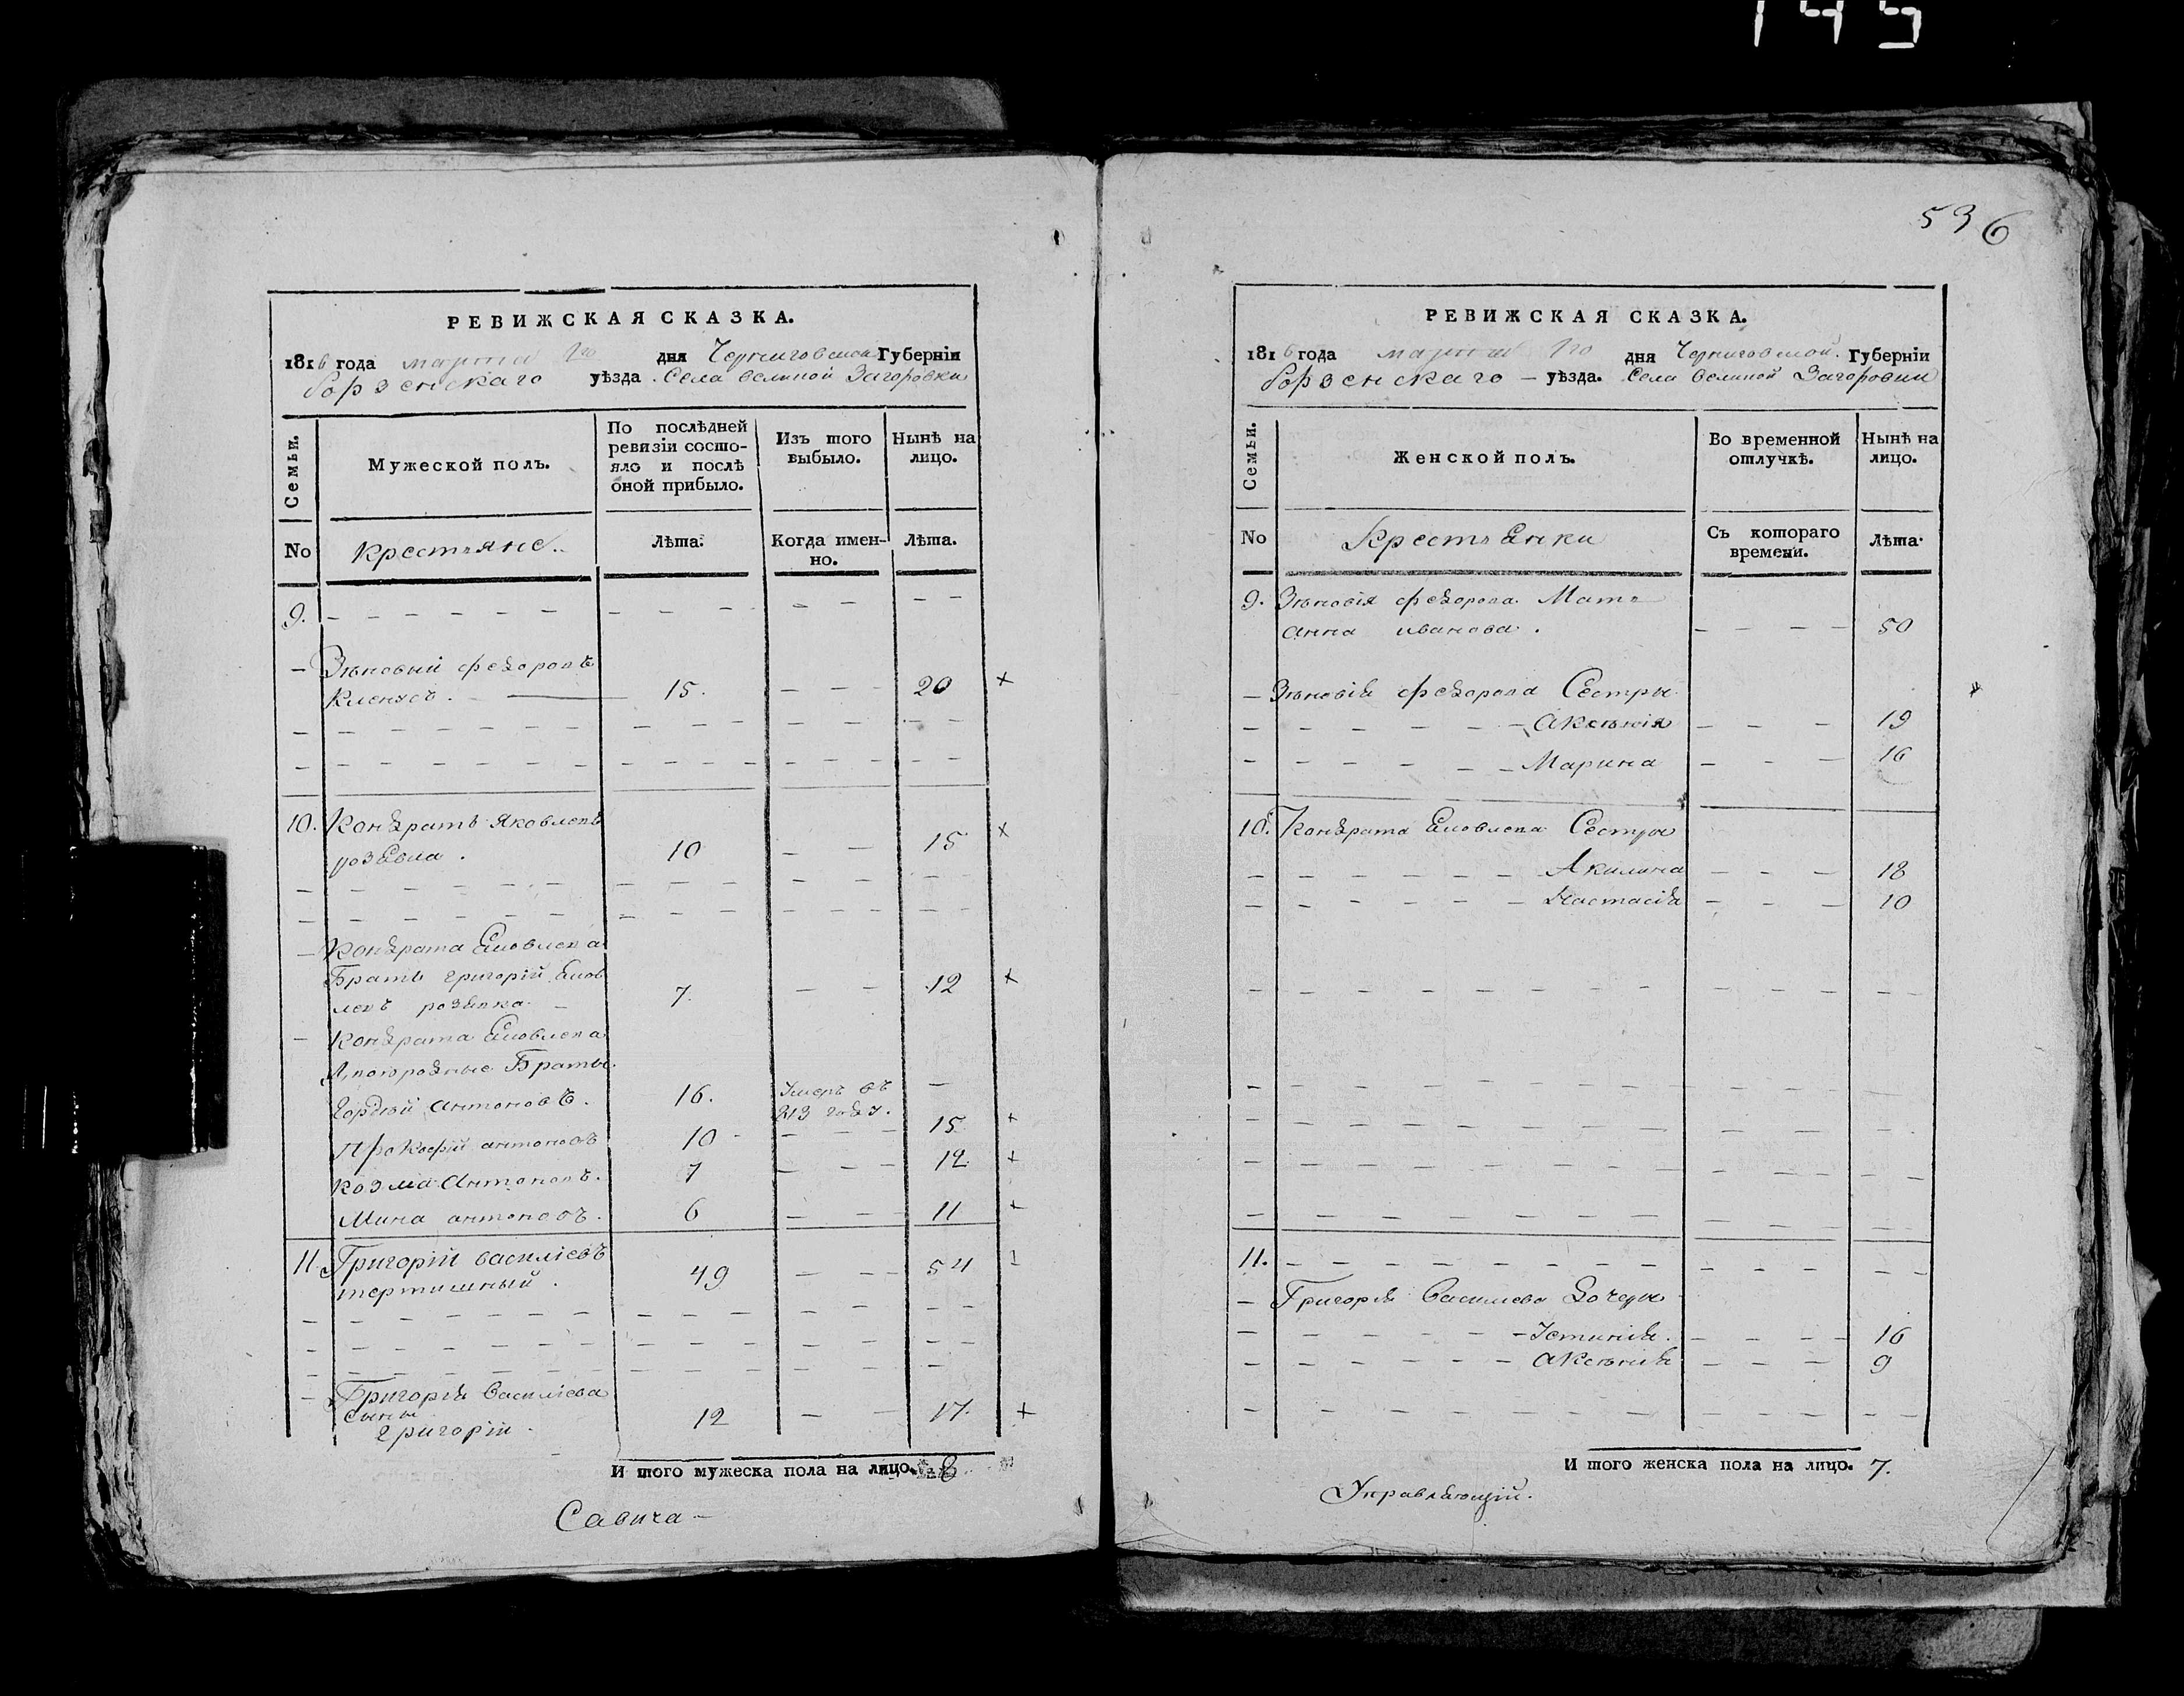 145
РЕВИЖСКАЯ СКАЗКА.
1816 года марта 1го дня Черниговской Губернiи
Борзенскаго уѣзда. Села великой Загоровки
Семьи.
Мужеской полъ.
По послѣдней ревизiи состояло и послѣ оной прибыло.
Изъ того выбыло.
Нынѣ на лицо.
No
крестьяне..
Лѣта.
Когда именно.
Лѣта.
9. – – – – – –
– Зѣновый федоровъ
– 15. – – – 20 ×
10. Кондратъ яковлевъ
10 – – 15 ×
– Кондрата Яковлева
Братъ григорiй Яков
левъ 7. – – 12 ×
– Кондрата Яковлева
Двоюродные Браты
Гордѣй антоновъ. 16. Умеръ въ –
813 году.
Прокофiй антоновъ 10 – – – – 15 ×
козма Антоновъ. 7 – – – 12 ×
Мина антоновъ. 6 – – 11 ×
11. Григорiй василiевъ
49 – – – 54
– Григорiя Василiева
Сыны
григорiй. 12 – – 17. ×
И того мужеска пола на лицо. 8
Савича –
536
РЕВИЖСКАЯ СКАЗКА.
1816 года марта 1го дня Черниговской. Губернiи
Борзенскаго – уѣзда. Села великой Загоровки
Семьи.
Женской полъ.
Во временной отлучкѣ.
Нынѣ на лицо.
No
Крестьянки
Съ котораго времени.
Лѣта.
9. Зѣновiя федорова Мать
анна иванова. – – – – 50
– Зѣновiя федорова Сестры
– – – – – – Аксѣнiя – – – 19
– – – – – – Марина – – – 16
10. Кондрата Яковлева Сестры
– – – – – – Акилина – – – 18
– – – – – – Настасiя – – – 10
11. – – – – – – – –
– Григорiя Василиева Дочери
– – – – – – Устинiя. – – – – 16
– – – – – – Аксѣния – – – 9
И того женска пола на лицо. 7.
Управляющiй.